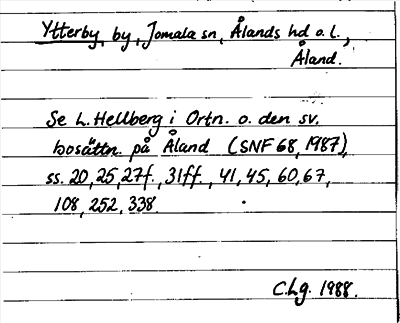 Ytterby, by, Jomala sn, Ålands hd o. l.,
Åland.
Se L. Hellberg i Ortn. o. den sv.
bosättn. på Åland (SNF 68, 1987),
ss. 20, 25, 27f., 31ff., 41, 45, 60, 67,
108, 252, 338.
C.Lg. 1988.